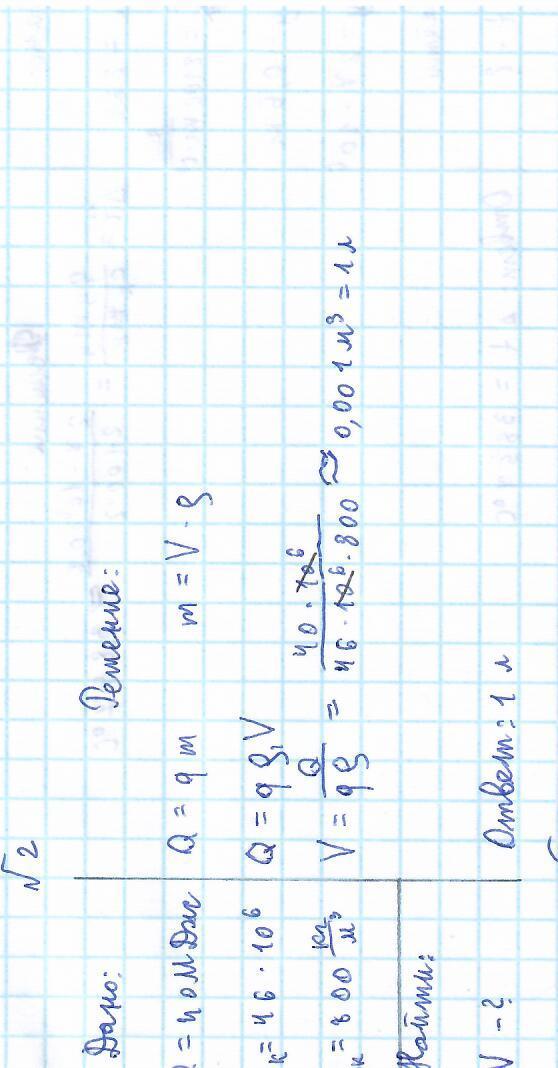 √2
Дано:
= 40МДж
к = 46 · 10⁶
к = 800 кг/м³
Найти:
V - ?
Решение:
Q = q m   m = V · ρ
Q = q ρ V
V = Q/qρ = 40 · 10⁶/46 · 10⁶ · 800 ≈ 0,001 м³ = 1 л
Ответ: 1 л